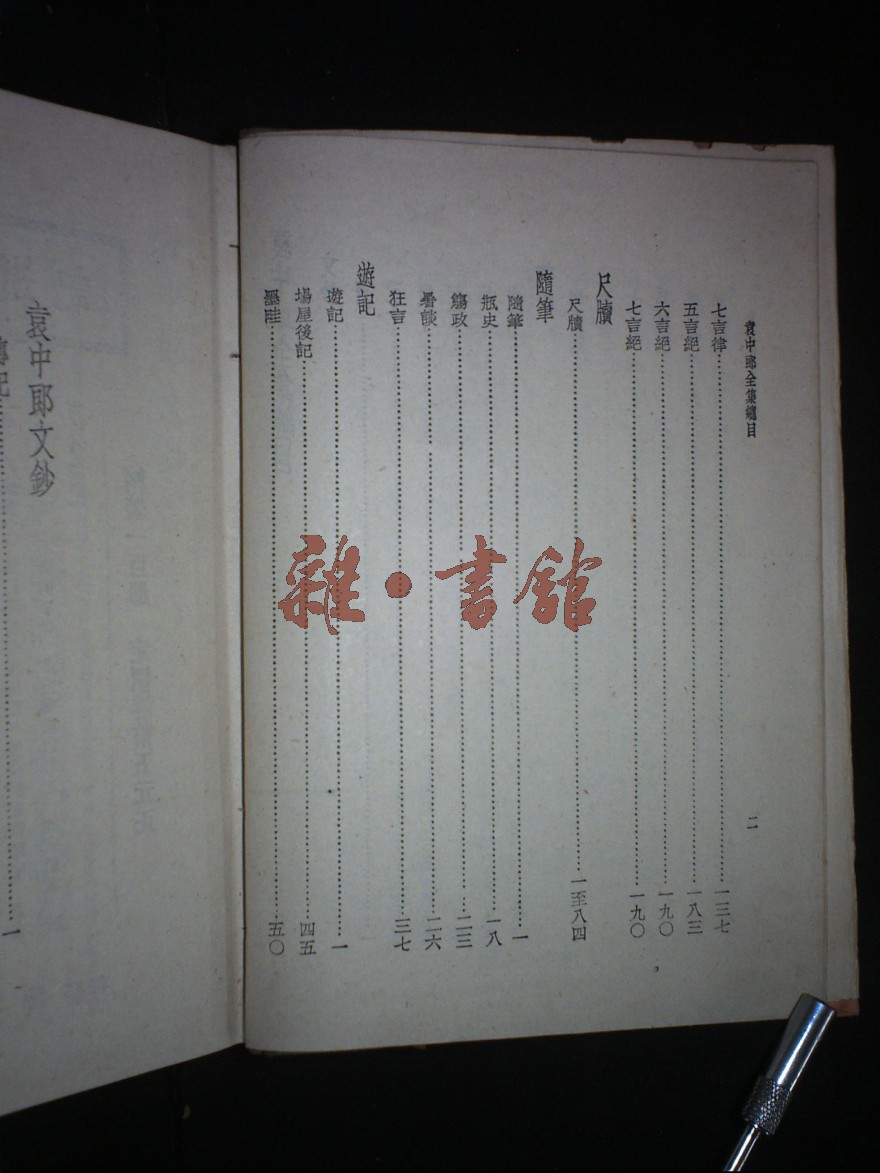 袁中郎全集總目
二
七言律 一三七
五言絕 一八三
六言絕 一九〇
七言絕 一九〇
尺牘
尺牘 一至八四
隨筆
隨筆 一
瓶史 一八
觴政 二三
暑談 二六
狂言 三七
遊記
遊記 一
場屋後記 四五
墨畦 五〇
袁中郎文鈔
傳記 一
雜·書館